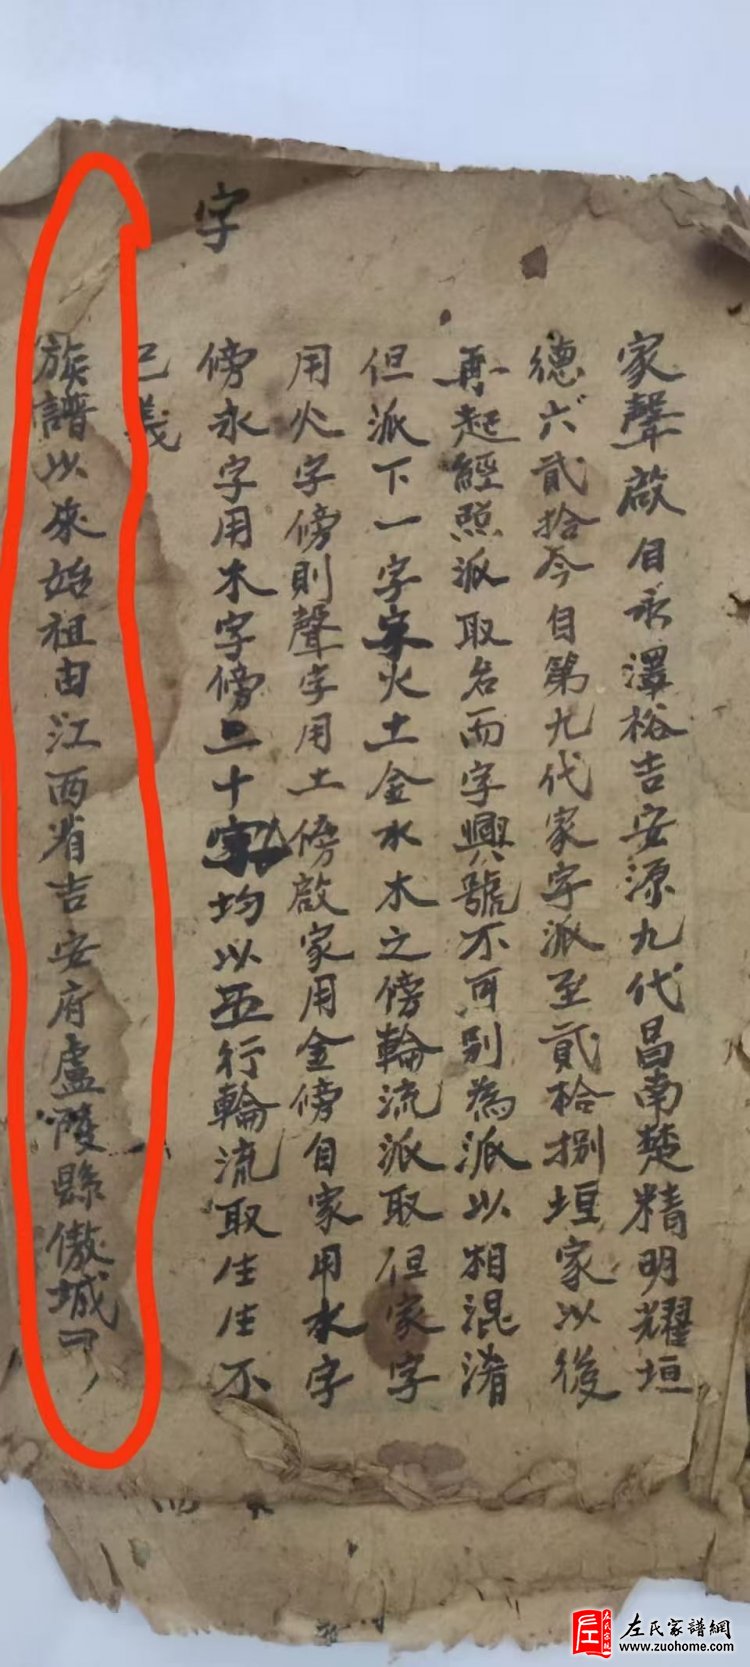 家聲啟自永澤裕吉安源九代昌南楚精明耀垣
德六貳拾今自第九代家字派至貳拾捌垣家以後
再起經照派取名而字興號不可别為派以相混淆
但派下一字字火土金水木之傍輪流派取但家字
用火字傍則聲字用土傍啟家用金傍自家用水字
傍永字用木字傍二十字均以五行輪流取生生不
已義
字
族譜以來始祖由江西省吉安府盧陵縣傲城
左氏家譜網
www.zuohome.com